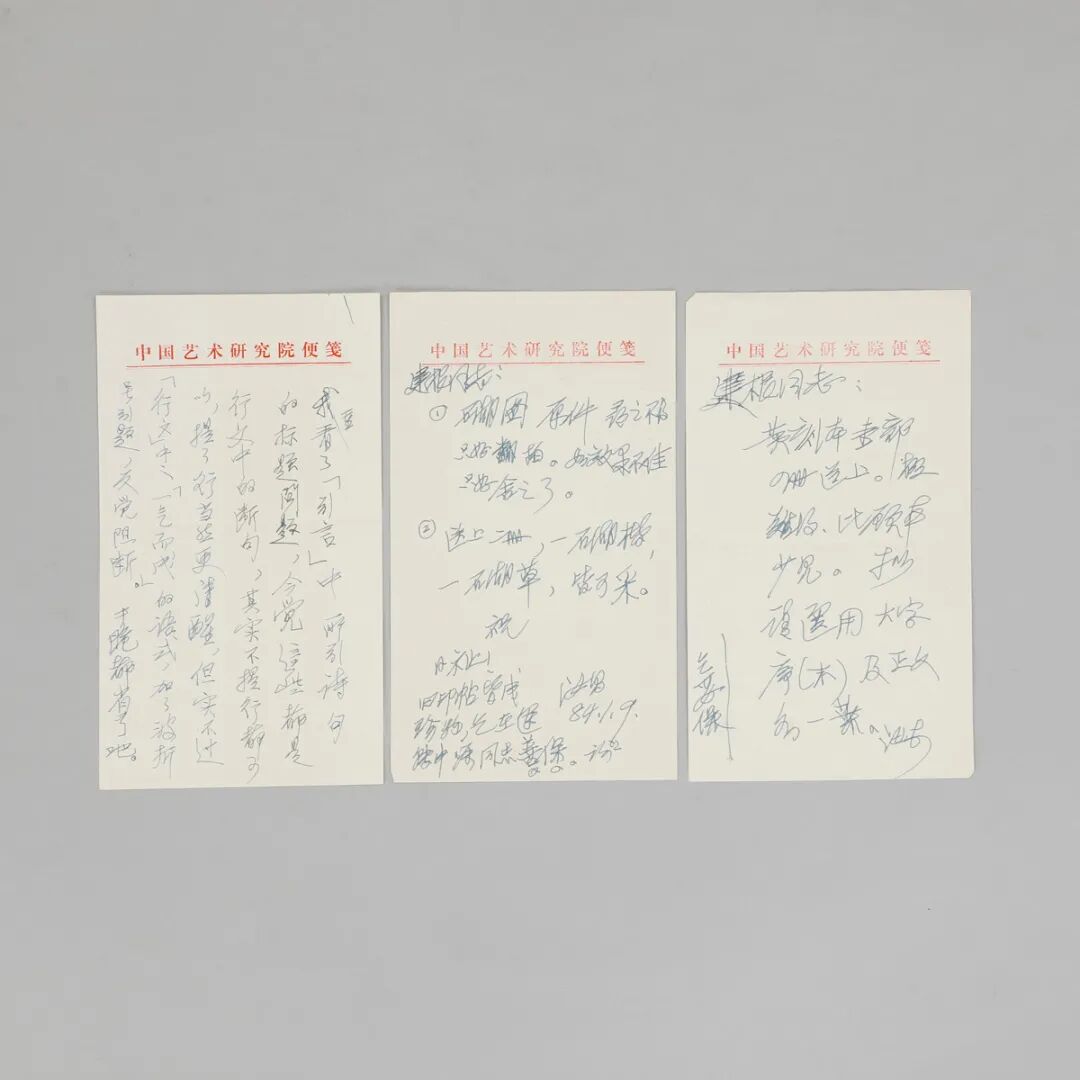 中国艺术研究院便笺
我看了「引言」中所引诗句
的标题问题，今觉这些都是
行文中的断句，其实不提行都可
以，提了行当然更清醒，但实不过
「行文」中之「一气而成」的语式，加了波折
号引题，反觉阻断。
都省了吧。
中国艺术研究院便笺
建根同志：
① 石湖图 原件 尋之不得
只好翻拍。如效果不佳
只好舍之了。
② 送上二册，一石湖
一石湖草，皆可采。
祝
礼！
汝昌
84.1.9.
旧印帖皆成
珍物，乞在
同志善保。
中国艺术研究院便笺
建根同志：
英刻本壹部
四册送上。极
难得，比
少见。拙
须选用大字
序（木）及正文
各一葉。汝昌
乞妥保